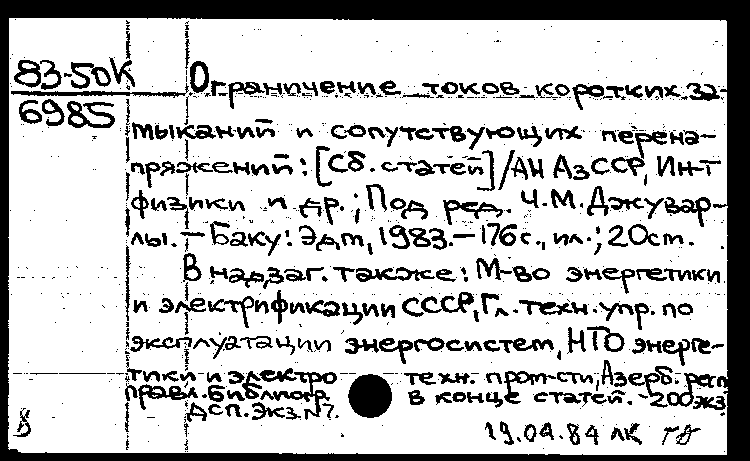 83-50К
6985
Ограничение токов коротких за-
мыканий и сопутствующих перена-
пряжений: [Сб. статей] / АН АзССР, Ин-т
физики и др.; Под ред. Ч.М. Джувар-
лы. — Баку: Элм, 1983. — 176с., ил.; 20см.
В надзаг. также: М-во энергетики
и электрификации СССР, Гл. техн. упр. по
эксплуатации энергосистем, НТО энерге-
тики и электро техн. пром-сти, Азерб. респ
правл. Библиогр. в конце статей. - 200 экз
ДСП. Экз. N7.
19.04.84 ЛК